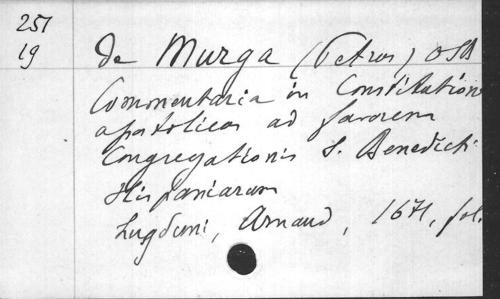 251
19
de Murga (Petrus) OSB
Commentaria in Constitution
apostolicas ad favorem
Congregationis S. Benedicti
Hispaniarum
Lugduni, Arnaud, 1671, fol.